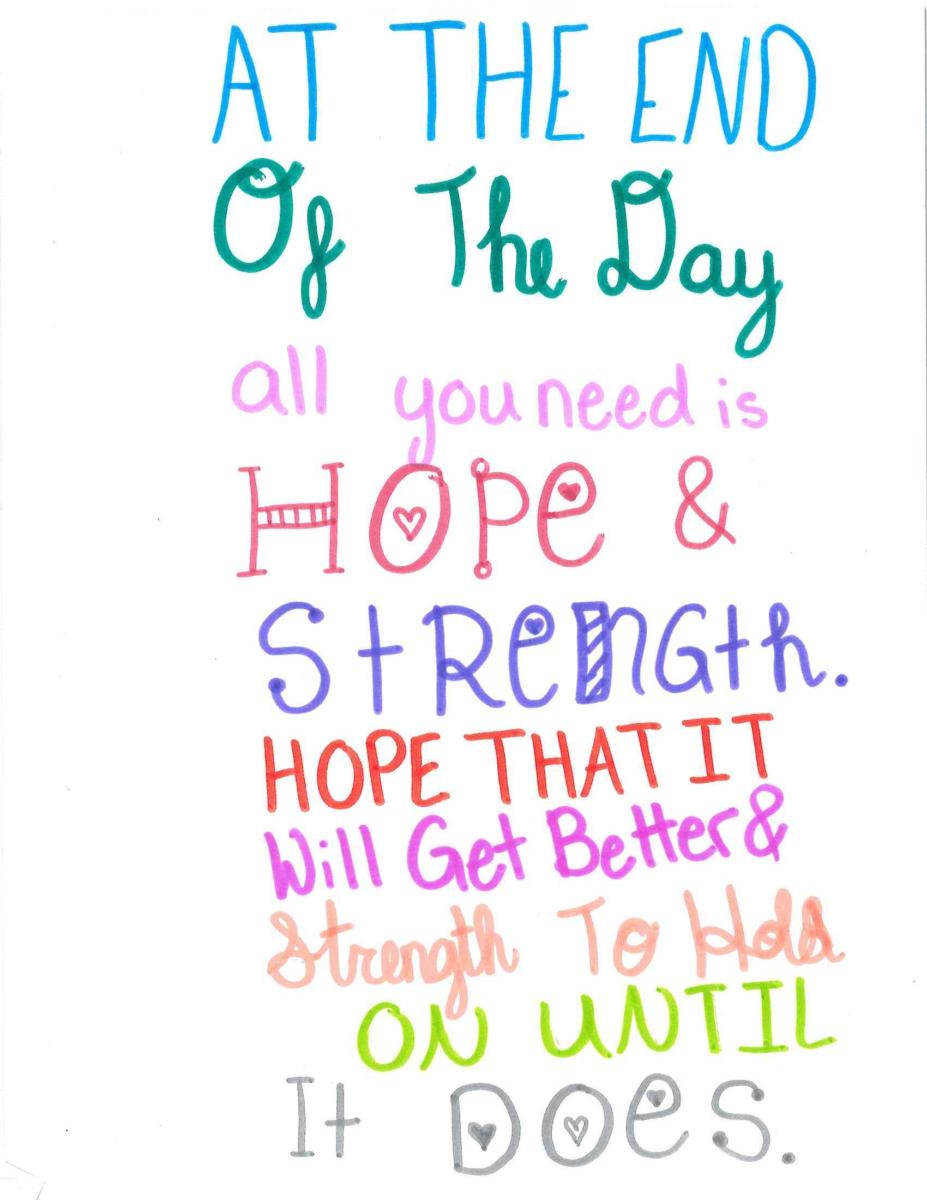 AT THE END
Of The Day
all you need is
HOPe &
StReNGth.
HOPE THAT IT
Will Get Better &
Strength To Hold
ON UNTIL
It DOeS.